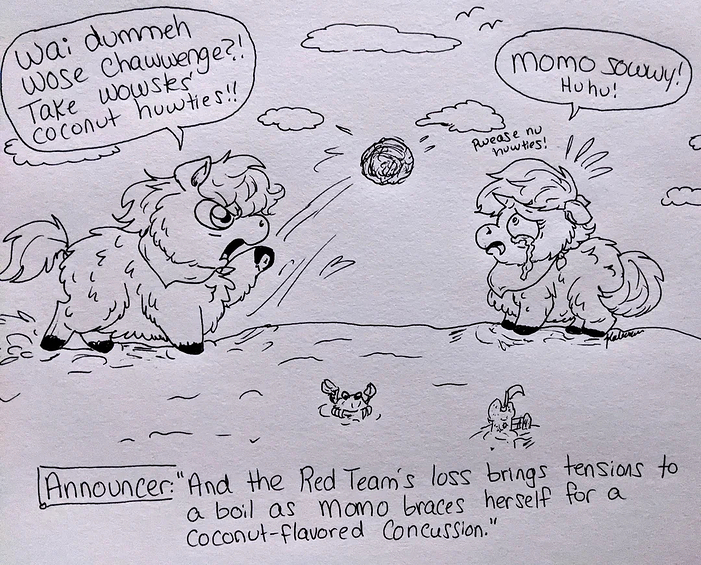 Wai dummeh
wose chawwenge?!
Take wowstes'
coconut huwties!!
momo sowwy!
Huhu!
Pwease nu
huwties!
Announcer: "And the Red Team's loss brings tensions to
a boil as Momo braces herself for a
coconut-flavored concussion."